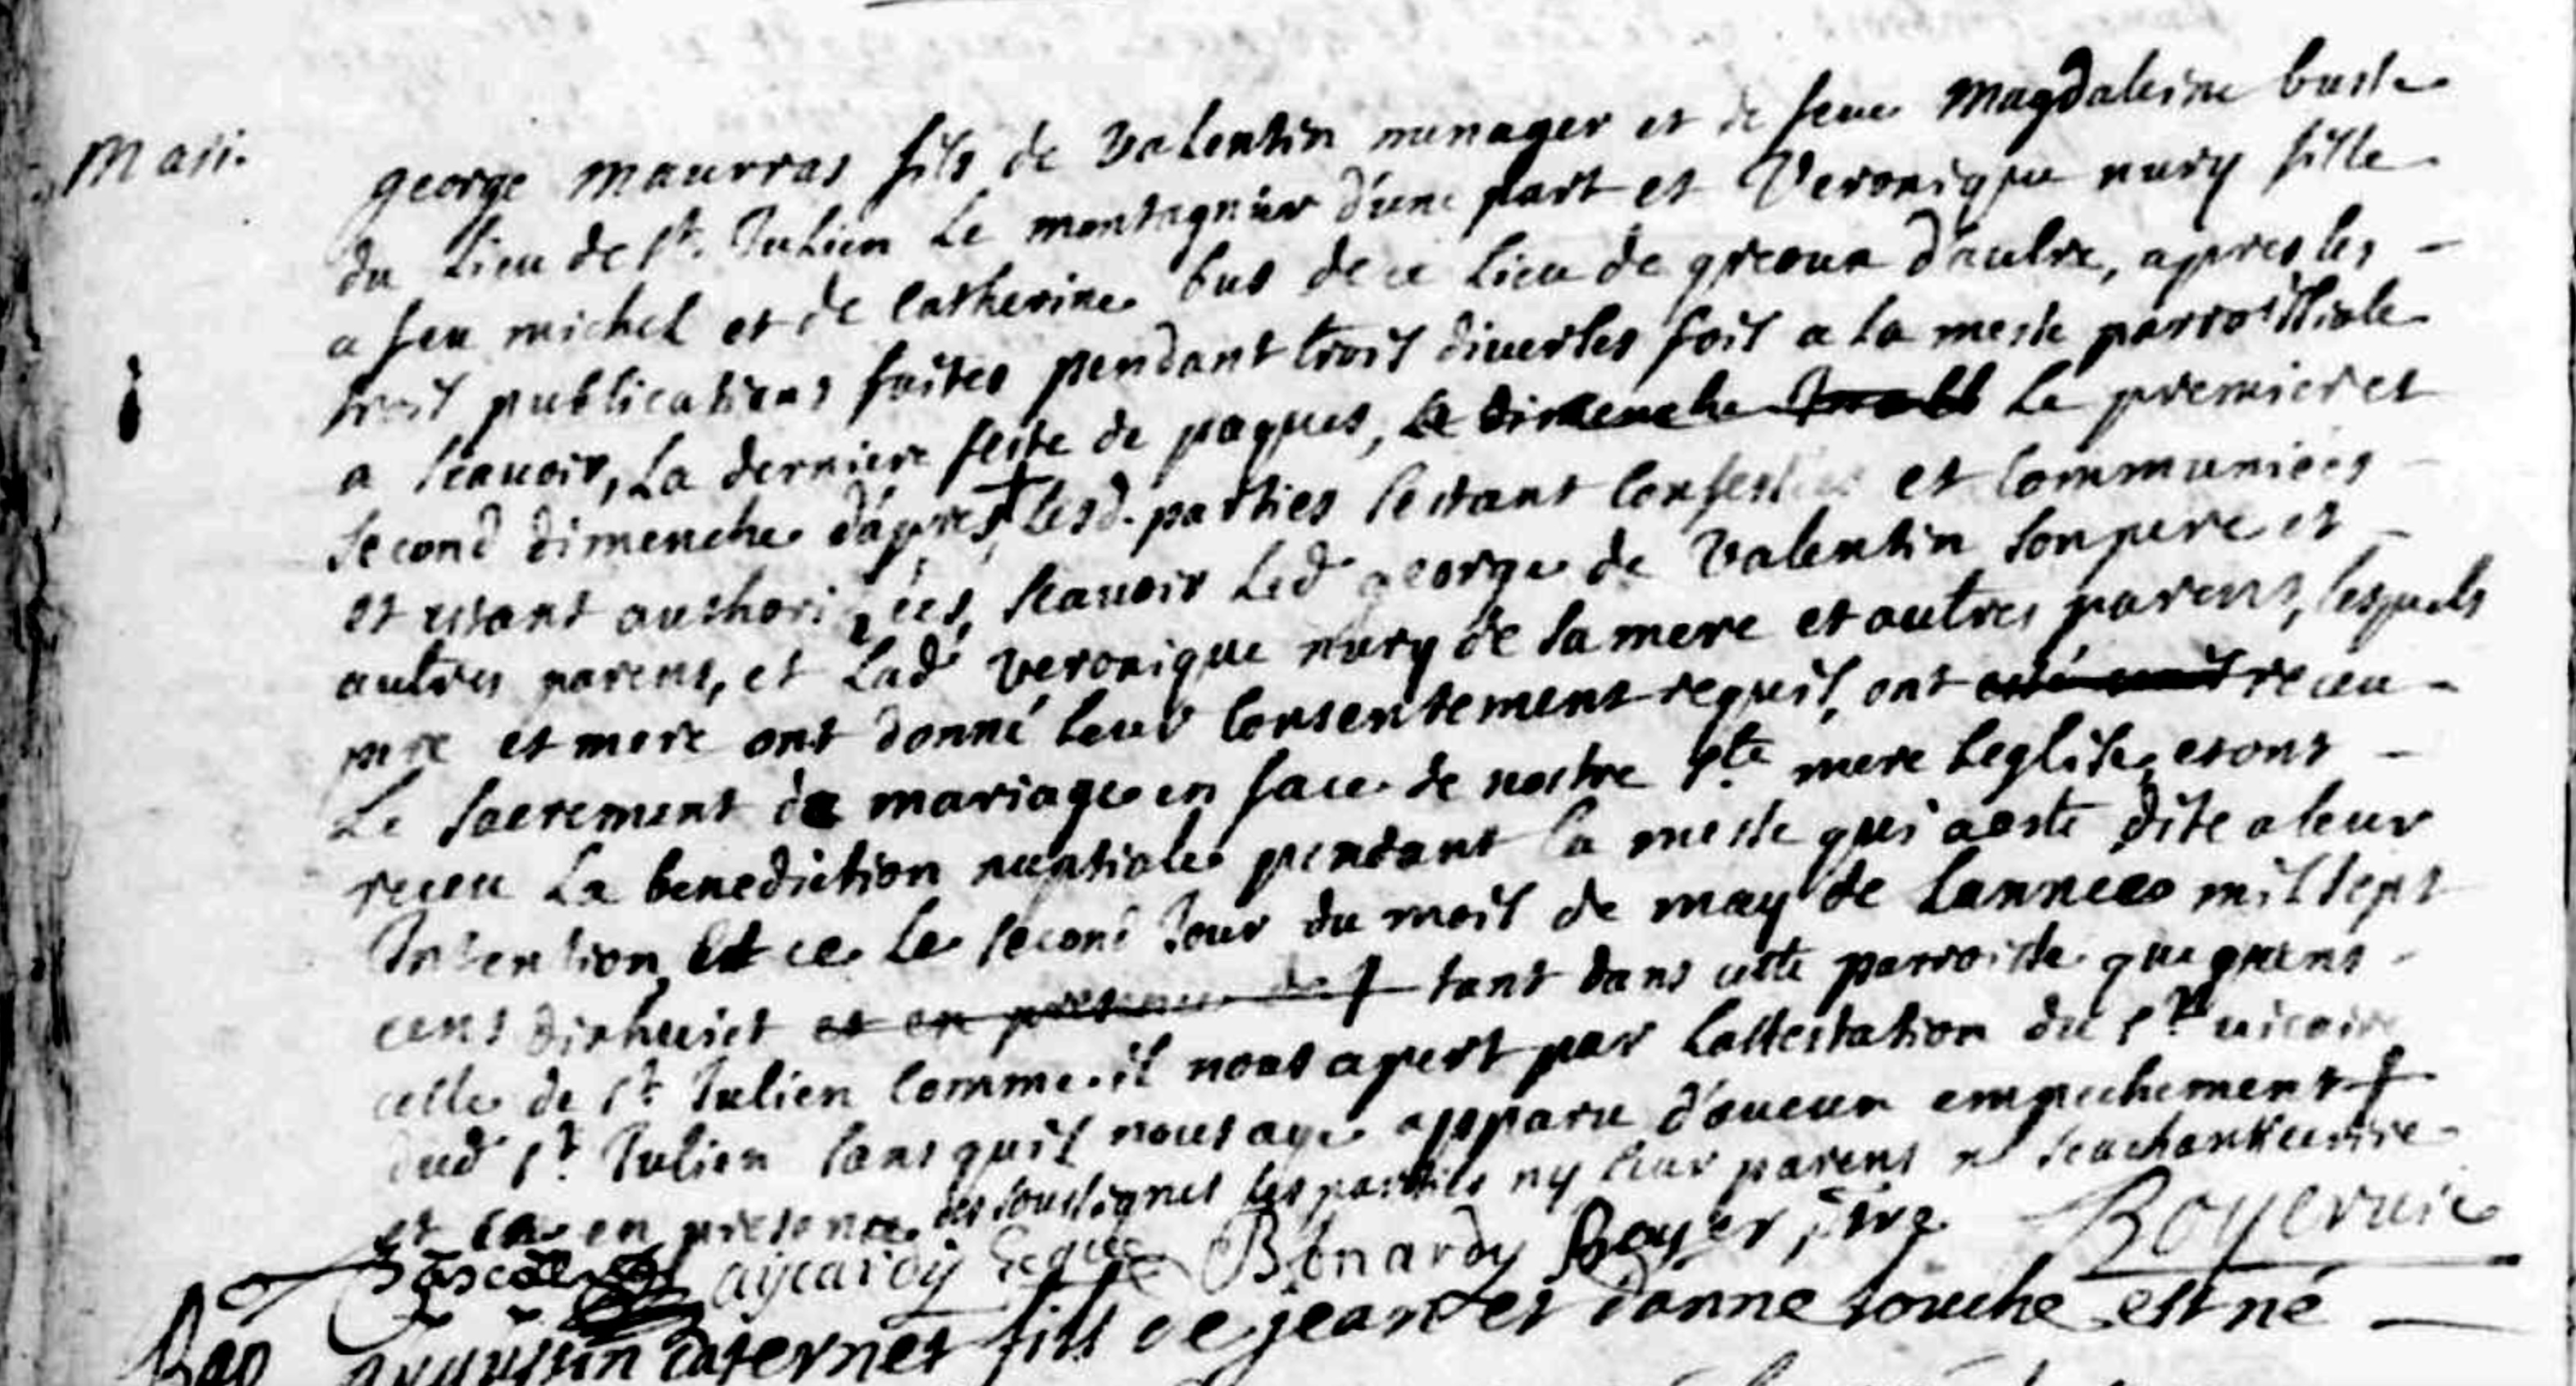 Mari.
george maurras fils de valentin menager et de feue Magdaleine
du lieu de St. Julien Le montagnier d'une part et Veronique nury fille
a feu michel et de catherine bus de ce lieu de greoux d'autre, apres les
trois publications faites pendant trois diverses fois a la messe parroissiale
a scauoir, la derniere feste de paques, le dimenche le premier et
second dimenche d'apres, lesd. parties sestant confessées et communiées
et estant authorizées, scauoir led george de valentin son pere et
autres parens, et lad veronique nury de sa mere et autres parens, lesquels
pere et mere ont donné leur consentement requis, ont receu
Le sacrement de mariage en face de nostre Ste mere Leglise et ont
receu La benediction nuptiale pendant la messe qui a esté dite a leur
Intention, Et ce le second Jour du mois de may de Lannee mil sept
cens dixhuict et en presence de tant dans cette parroisse que quens
celle de St Julien comme il nous apert par Lattestation du Sr vicaire
dud St Julien sans quil nous aye apparu d'aucun empechement
et ce en presence des soussignes les parties ny leur parens n scachant ecrire
aycardy Bonardy Boyer ptre Boyer vic
Bap augustin fils de jean et danne touche est né